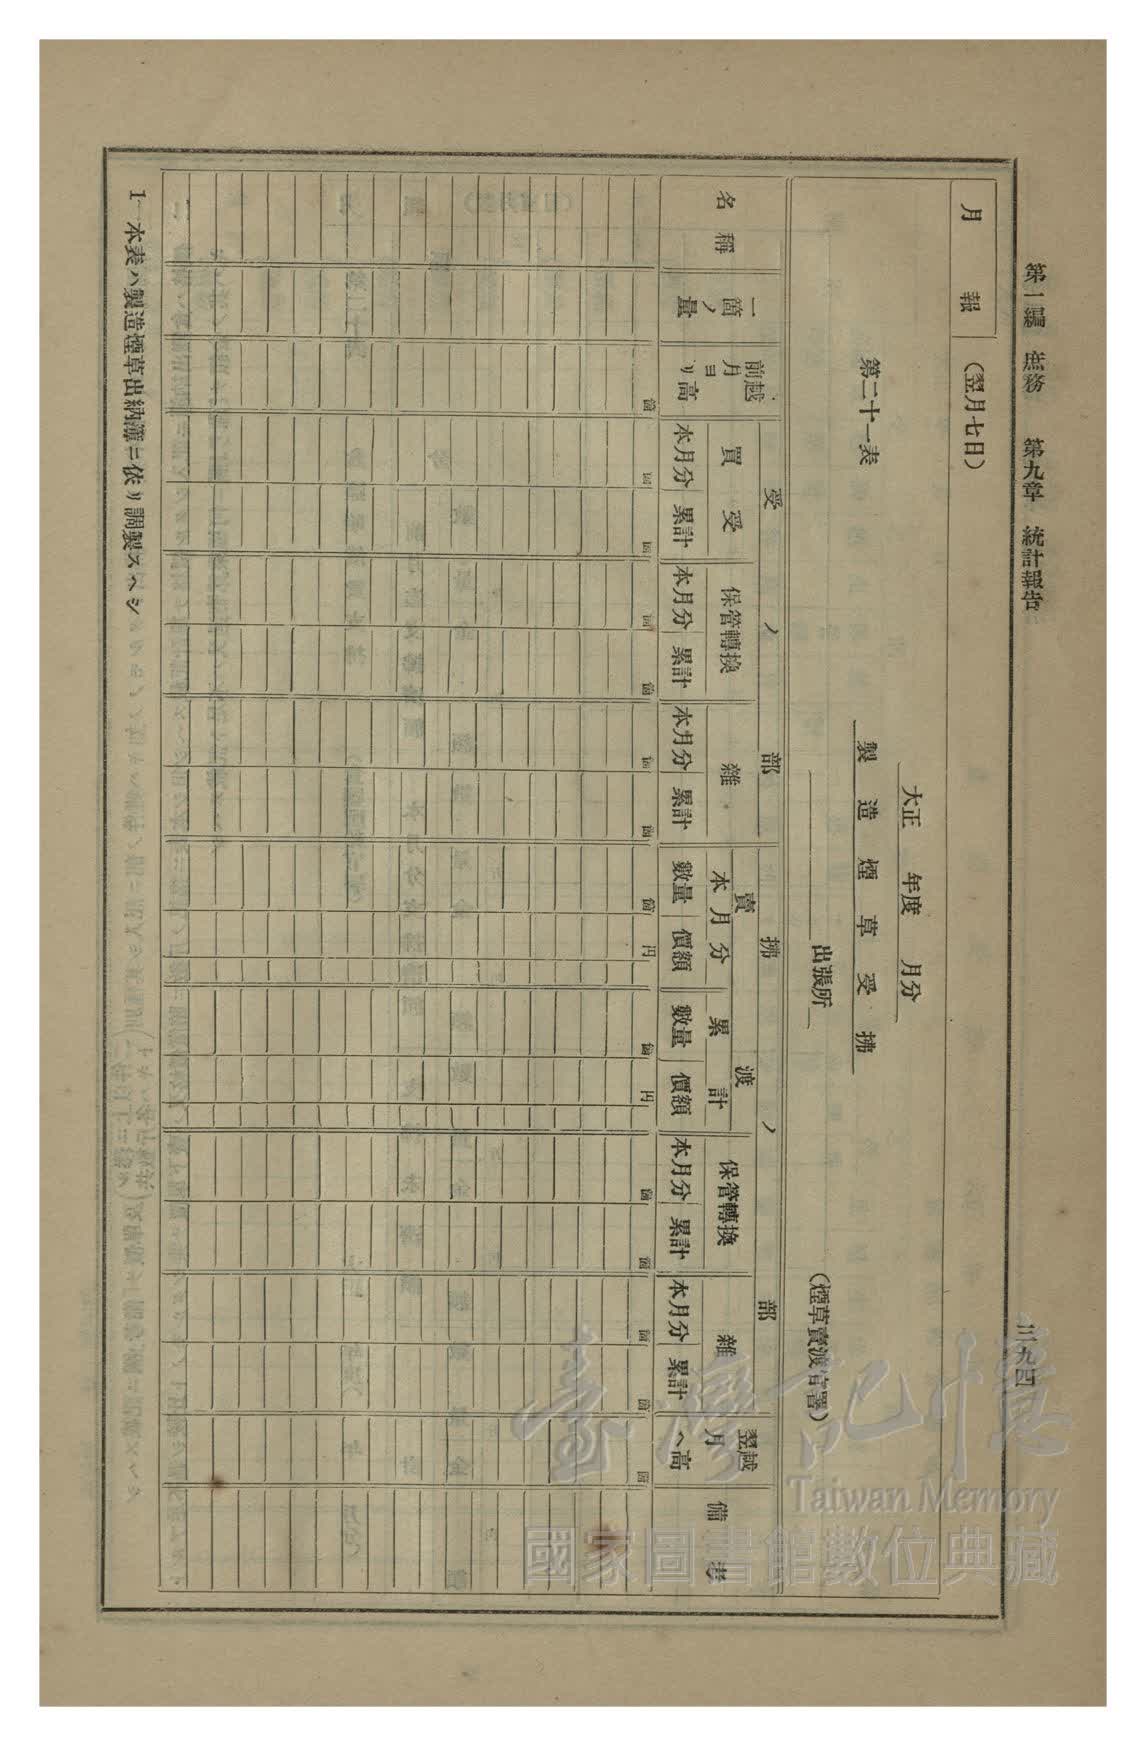 第一編　庶務　第九章　統計報告
三九四
月報
(翌月七日)
大正　年度　月分
第二十一表
製造煙草受拂
出張所
(煙草賣渡官署)
名稱
一箇ノ量
前月ヨリ越高
受ノ部
買受
本月分　累計
保管轉換
本月分　累計
雜
本月分　累計
拂ノ部
賣渡
本月分
數量　價額
累計
數量　價額
保管轉換
本月分　累計
雜
本月分　累計
翌月ヘ越高
備考
箇　箇　箇　箇　箇　箇　箇　箇　円　箇　円　箇　箇　箇　箇　箇
1　本表ハ製造煙草出納簿ニ依リ調製スヘシ
臺灣記憶
Taiwan Memory
國家圖書館數位典藏